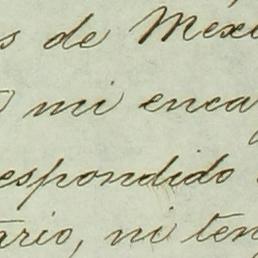 s de Méxi
mi enca
espondido
ario, ni ten